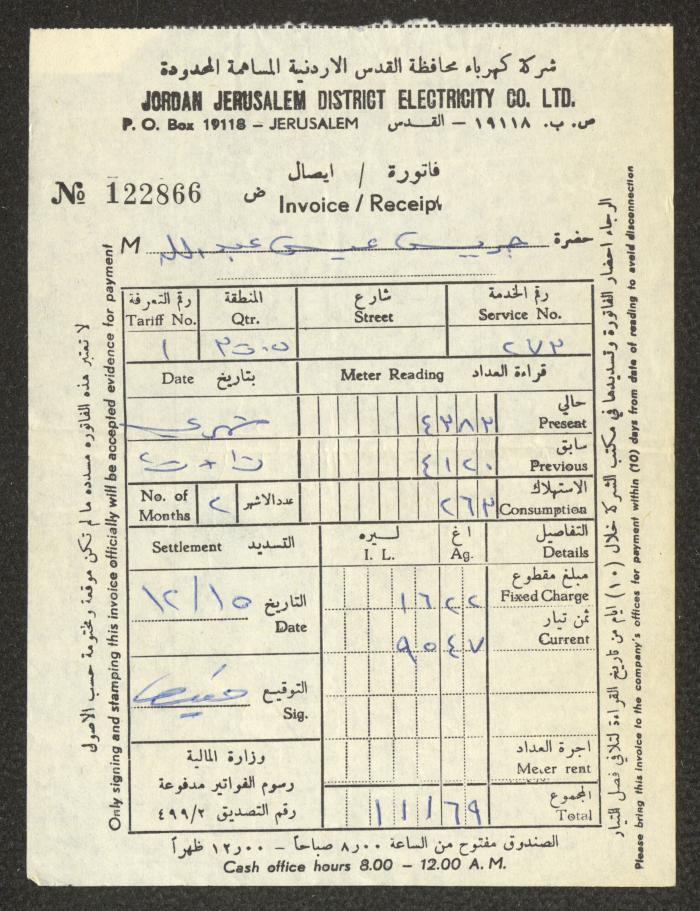 شركة كهرباء محافظة القدس الاردنية المساهمة المحدودة
JORDAN JERUSALEM DISTRICT ELECTRICITY CO. LTD.
P. O. Box 19118 – JERUSALEM ص. ب. ١٩١١٨ – القـــدس
فاتورة / ايصال
№ 122866 ض Invoice / Receipt
M جريس عيسى عبدالله حضرة
رقم التعرفة المنطقة شارع رقم الخدمة
Tariff No. Qtr. Street Service No.
١ ٢٧٣
Date بتاريخ Meter Reading قراءة العداد
٤٣٨٣ حالي
Present
٤١٢٠ سابق
Previous
No. of Months ٢ عدد الاشهر ٢٦٣ الاستهلاك
Consumption
Settlement التسديد ليره اغ التفاصيل
I. L. Ag. Details
١٢/١٥ التاريخ
Date
١٦٢٢ مبلغ مقطوع
Fixed Charge
٩٥٤٧ ثمن تيار
Current
التوقيع
Sig.
اجرة العداد
Meter rent
وزارة المالية
رسوم الفواتير مدفوعة
رقم التصديق ٤٩٩/٢
١١١٦٩ المجموع
Total
الصندوق مفتوح من الساعة ٠٠ر٨ صباحاً – ٠٠ر١٢ ظهراً
Cash office hours 8.00 – 12.00 A. M.
لا تعتبر هذه الفاتوره مسدده ما لم تكن موقعة ومختومة حسب الاصول
Only signing and stamping this invoice officially will be accepted evidence for payment
الرجاء احضار الفاتورة وتسديدها في مكتب الشركة خلال (١٠) ايام من تاريخ القراءة لتلافي فصل التيار
Please bring this invoice to the company's offices for payment within (10) days from date of reading to avoid disconnection